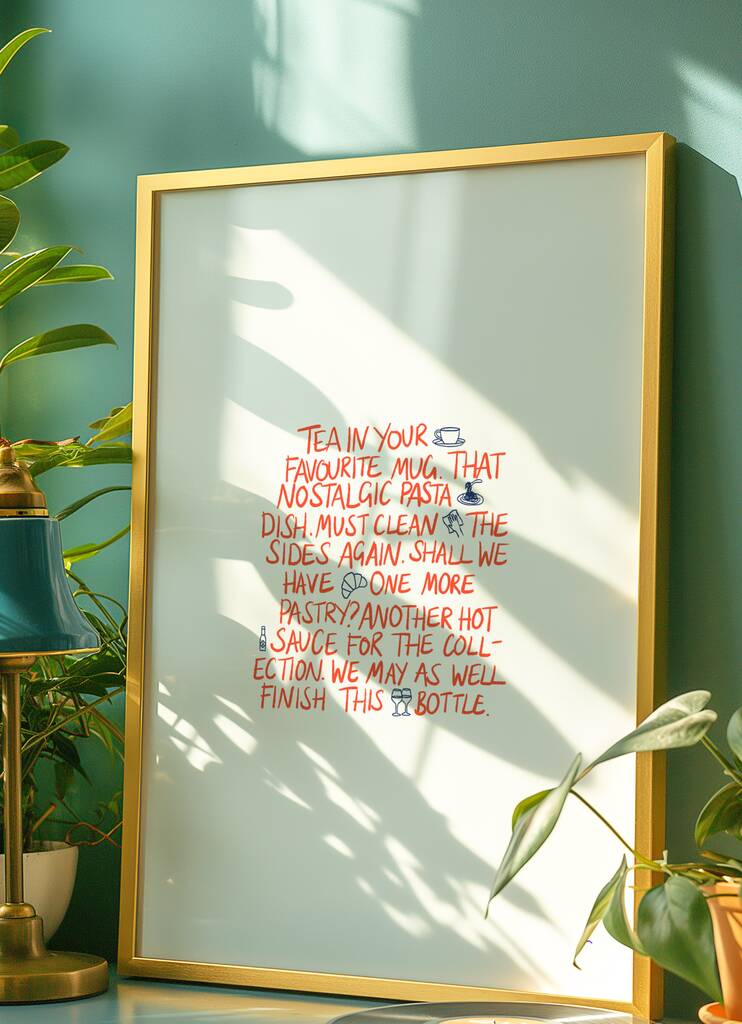 TEA IN YOUR
FAVOURITE MUG. THAT
NOSTALGIC PASTA
DISH. MUST CLEAN THE
SIDES AGAIN. SHALL WE
HAVE ONE MORE
PASTRY? ANOTHER HOT
SAUCE FOR THE COLL-
ECTION. WE MAY AS WELL
FINISH THIS BOTTLE.